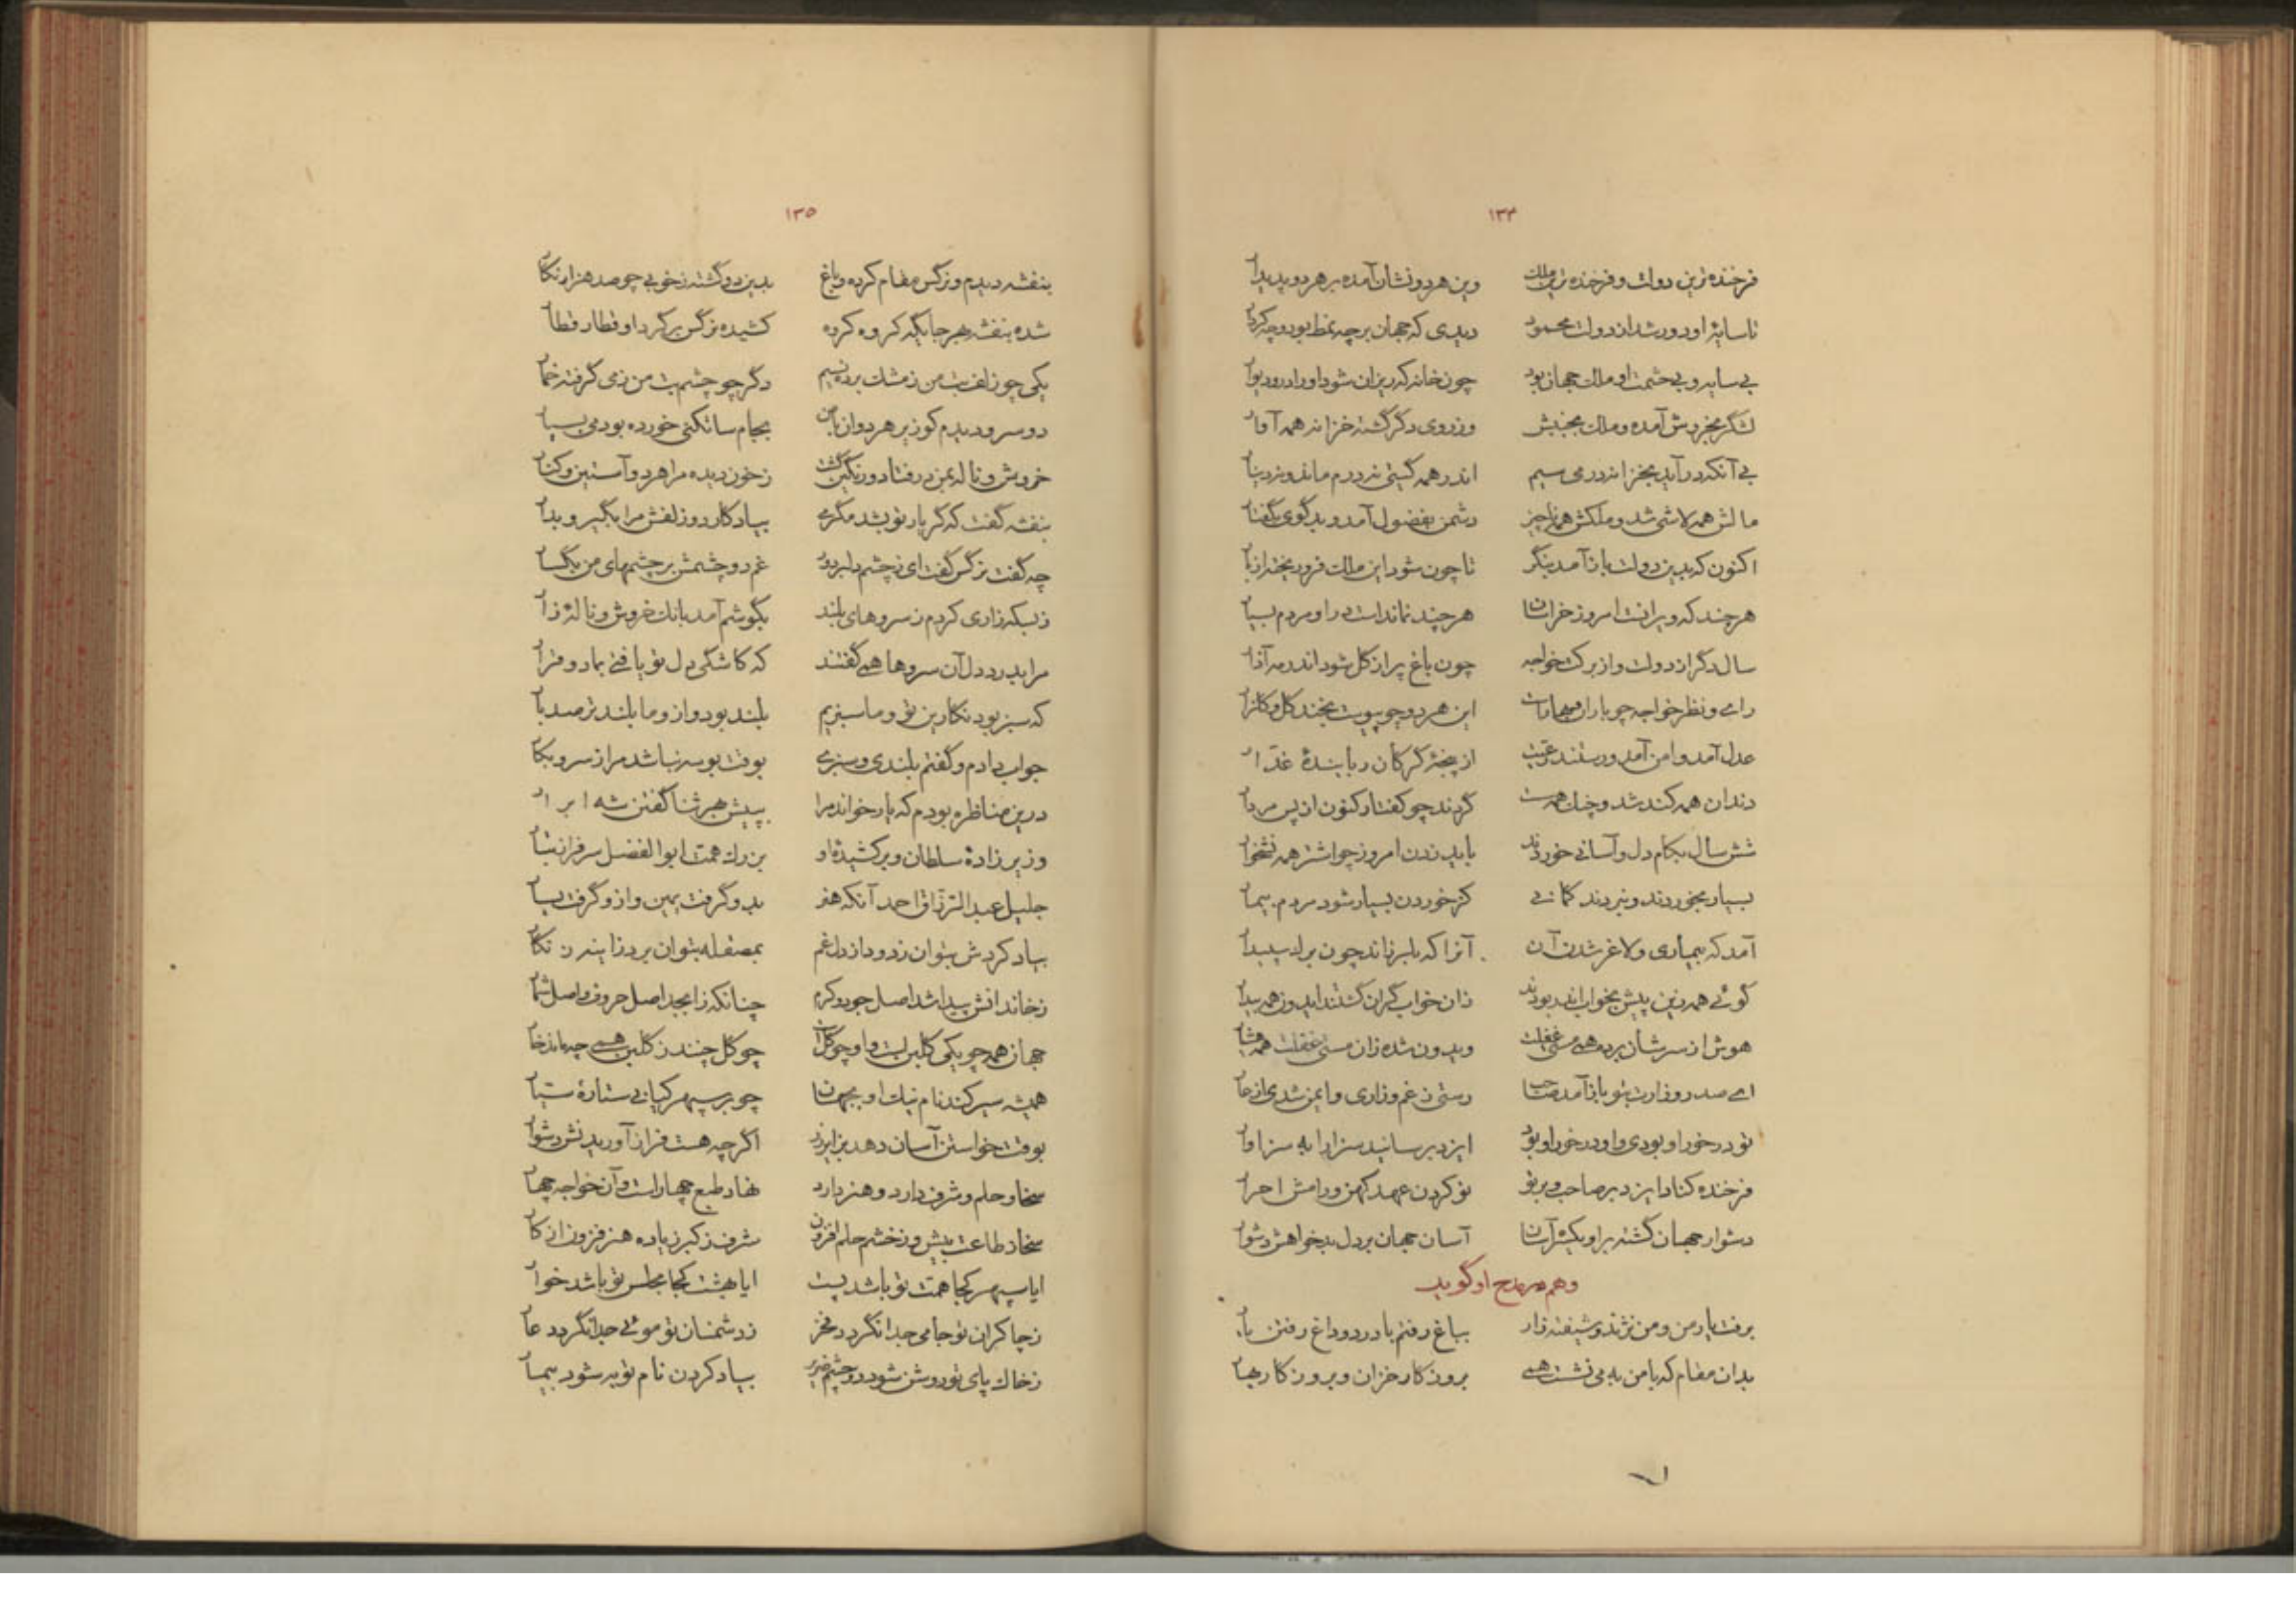 ۱۳۴
فرخنده‌ترین دولت و فرخنده‌ترین ملک وین هر دو نشان آمده بر هر دو پدیدار
تا سایهٔ او دور شد از دولت محمود دیدی که جهان بر چه نمط بود و چه کردار
بی سایه و بی حشمت او ملک جهان بود چون خانه که ریزان شود او را در و دیوار
لشگر بخروش آمده و ملک بجنبش وز روی دگر گشته خزانه همه آوار
بی آنکه در آید بخزانه درمی سیم اندر همه گیتی نه درم ماند و نه دینار
مالش همه لاشی شد و ملکش همه ناچیز دشمن بفضول آمد و بدگوی بگفتار
اکنون که بدین دولت باز آمد بنگر تا چون شود این ملک فرو ریخته از بار
هر چند که ویرانست امروز خراسان هر چند نماندست در او مردم بسیار
سال دگر از دولت و از برکت خواجه چون باغ پر از گل شود اندر مه آذار
رای و نظر خواجه چو باران و بهارست این هر دو چو پیوست بخندد گل و گلزار
عدل آمد و امن آمد و رستند رعیت از پنجهٔ گرگان ربایندهٔ غدّار
دندان همه کند شد و چنگ همه سست گردند چو کفتار کنون از پس مردار
شش سال بکام دل و آسانی خوردند باید زدن امروز چو اشتر همه نشخوار
بسیار بخوردند و نبردند گمانی کز خوردن بسیار شود مردم بیمار
آمد گه بیماری و لاغر شدن آن آنرا که بلبرزاند چون برک سپیدار
گوئی همه زین پیش بخواب اندر بودند زان خواب گران گشتند ایدون همه بیدار
هوش از سرشان برده همی مستی غفلت ویدون شده زان مستی غفلت همه هشیار
ای صدر وزارت بتو باز آمد صاحب رستی ز غم و زاری و ایمن شدی از عار
تو در خور او بودی و او در خور او بود ایزد برسانید سزا را به سزاوار
فرخنده کناد ایزد بر صاحب و بر تو نو کردن عهد کهن و رامش احرار
دشوار جهان گشته بر او یکسر آسان آسان جهان بر دل بدخواهش دشوار
وهم در مدح او گوید
برفت یار من و من نژند و شیفته زار بباغ رفتم با درد و داغ رفتن یار
بدان مقام که با من به می نشست همی بروزگار خزان و بروزگار بهار
۱۳۵
بنفشه دیدم و نرگس مقام کرده و باغ بدین دو گشته ز خوبی چو صد هزار نگار
شده بنفشه بهر جایگه گروه گروه کشیده نرگس بر گرد او قطار قطار
یکی چو زلف بت من ز مشک برده نسیم دگر چو چشم بت من ز می گرفته خمار
دو سرو دیدم کو زیر هر دوان با من بجام ساتگنی خورده بود می بسیار
خروش و ناله بمن در فتاد و رنگین گشت ز خون دیده مرا هر دو آستین و کنار
بنفشه گفت که گر یار تو بشد مگری بیادگار دو زلفش مرا بگیر و بدار
چه گفت نرگس گفت ای ز چشم دلبر دور غم دو چشمش بر چشمهای من بگسار
ز بسکه زاری کردم ز سروهای بلند بگوشم آمد بانگ خروش و نالهٔ زار
مرا بدرد دل آن سروها همی گفتند که کاشکی دل تو یافتی بما دو قرار
که سبز بود نگارین تو و ما سبزیم بلند بود و از او ما بلندتر صد بار
جواب دادم و گفتم بلندی و سبزی بوقت بوسه نباشد مرا ز سرو بکار
درین مناظره بودم که یار خواند مرا بپیش هر ثنا گفتن شه ابرار
وزیر زادهٔ سلطان و برکشیدهٔ او بزرگ همت ابوالفضل سرفراز تبار
جلیل عبدالرزّاق احمد آنکه هنر بدو گرفت یمین و ازو گرفت یسار
بیاد کردش بتوان زدود از دل غم بمصقله بتوان برد ز آینه زنگار
ز خاندانش پیدا شد اصل جود و کرم چنانکه ز ابجد اصل حروف و اصل شمار
جهان همه چو یکی گلبن است و او چو گل است چو گل چنند ز گلبن همی چه ماند خار
همیشه سیر کند نام نیک او بجهان چو بر سپهر کیانی ستارهٔ سیار
بوقت خواستن آسان دهد بزایر زر اگر چه هست فراز آوریدنش دشوار
سخا و حلم و شرف دارد و هنر دارد نهاد طبع چهارست و آن خواجه چهار
سخا ز طاعت بیش و ز خشم حلم افزون شرف ز کبر زیاده هنر فزون از کار
ایا سپهر کجا همت تو باشد پست ایا بهشت کجا مجلس تو باشد خوار
ز چاکران تو جامی جدا نگردد فخر ز دشمنان تو موئی جدا نگردد عار
ز خاک پای تو روشن شود دو چشم ضریر بیاد کردن نام تو به شود بیمار